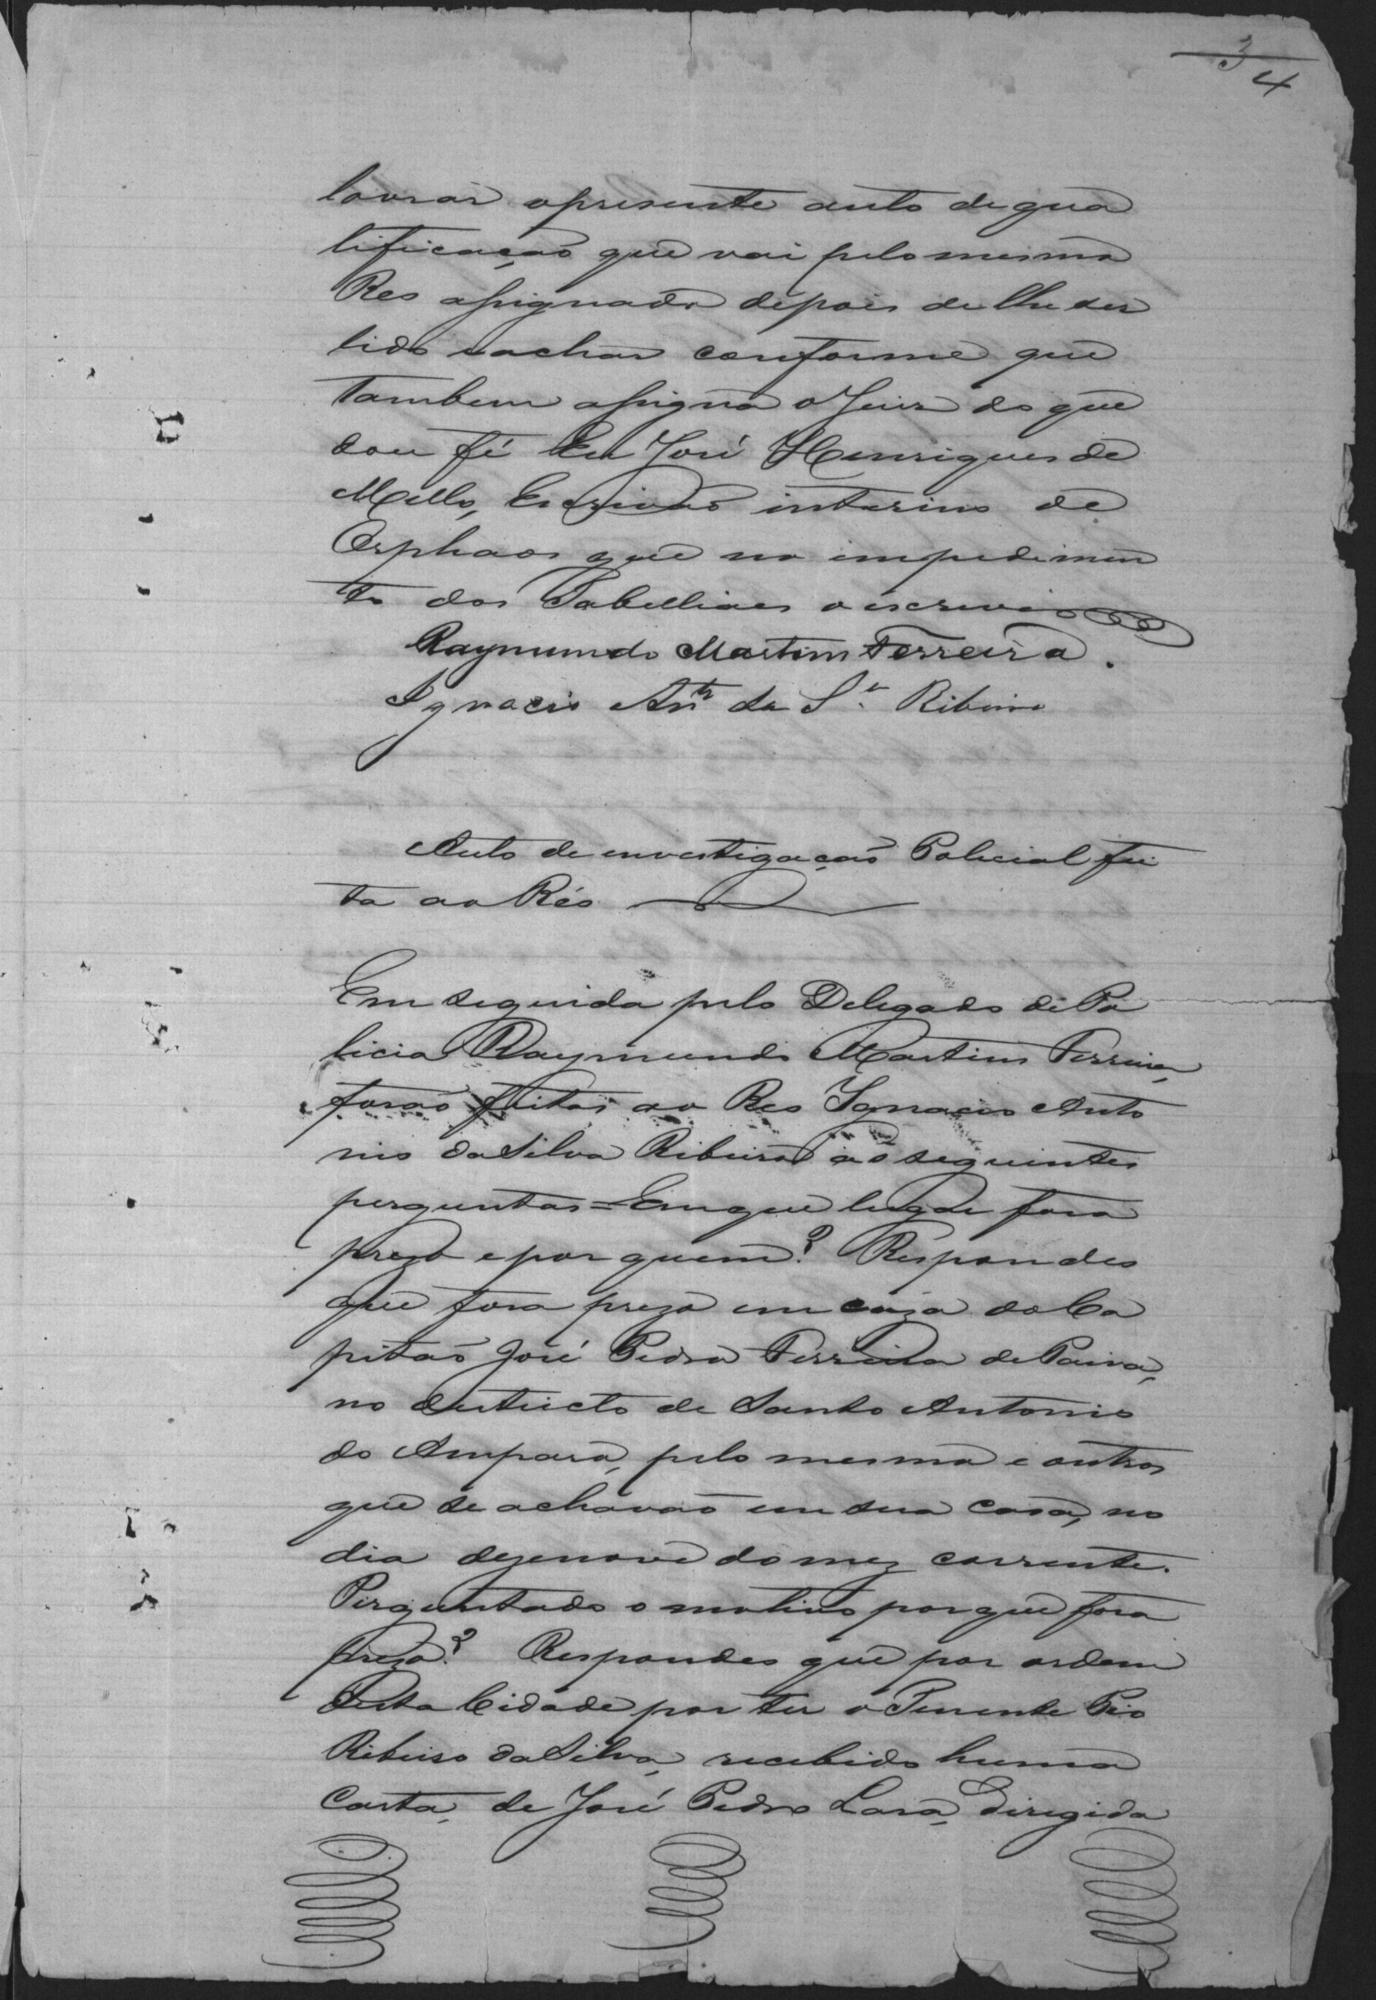 3
4
lavrar o presente auto de qua
lificação que vai pelo mesmo
Reo assignado depois de lhe ser
lido e achar conforme que
tambem assigna o Juiz do que
dou fé Eu José Henriques de
Mello, Escrivão interino de
Orphaos que no impedimen
to dos Tabelliaes o escrevi
Raymundo Martins Ferreira.
Ignacio Antº da Sª Ribeiro
Auto de investigação Policial fei
ta ao Réo
Em seguida pelo Delegado de Po
licia Raymundo Martins Ferreira,
forão feitas ao Reo Ignacio Anto
nio da Silva Ribeiro as seguintes
perguntas = Em que lugar fora
prezo e por quem? Respondeo
que fora prezo em caza do Ca
pitão José Pedro Ferreira de Paiva,
no destricto de Santo Antonio
do Amparo, pelo mesmo e outros
que se achavão em sua casa, no
dia dezenove do mez corrente.
Perguntado o motivo porque fora
prezo? Respondeo que por ordem
desta Cidade por ter o Tenente Pio
Ribeiro da Silva, recebido huma
Carta, de José Pedro Lara, dirigida